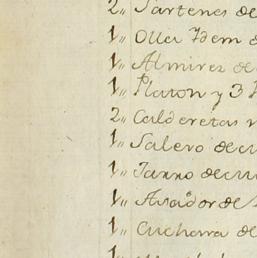 2,, Sartenes de
1,, Olla Ydem d
1,, Almirez de
1,, Platon y 3
2,, Calderetas
1,, Salero de
1,, Jarro de
1,, Asador de
1,, Cuchara de
1,,